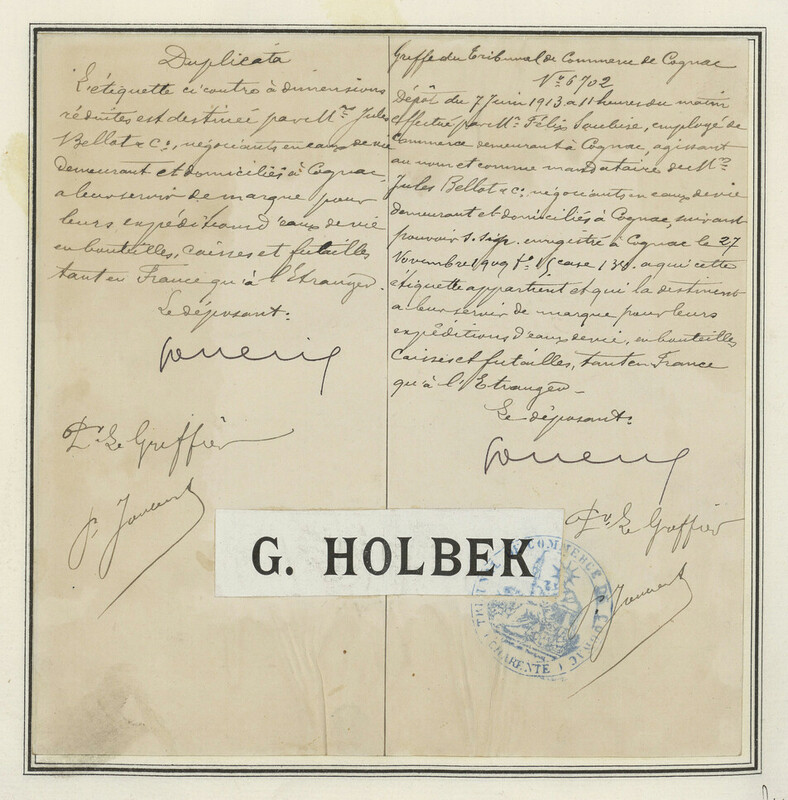 Duplicata
L'étiquette ci contre à dimensions
réduites est destinée par Mrs Jules
Bellot & Co, négociants en eaux de vie
demeurant et domiciliés à Cognac,
a leur servir de marque pour
leurs expéditions d'eaux de vie
en bouteilles, caisses et futailles
tant en France qu'à l'Etranger.
Le déposant:
Pr Le Greffier
Greffe du Tribunal de Commerce de Cognac
No 6702
Dépôt du 7 Juin 1913 à 11 heures du matin
effectué par Mr Félix employé de
Commerce demeurant à Cognac, agissant
au nom et comme mandataire de Mrs
Jules Bellot & Co, négociants en eaux de vie
demeurant et domiciliés à Cognac, suivant
pouvoir s. s. p. enregistré à Cognac le 27
Novembre 1909 fo case 13 a qui cette
étiquette appartient et qui la destinent
a leur servir de marque pour leurs
expéditions d'eaux de vie, en bouteilles
caisses et futailles, tant en France
qu'à l'Etranger.
Le déposant:
Pr Le Greffier
G. HOLBEK
TRIBUNAL DE COMMERCE DE COGNAC
(CHARENTE)